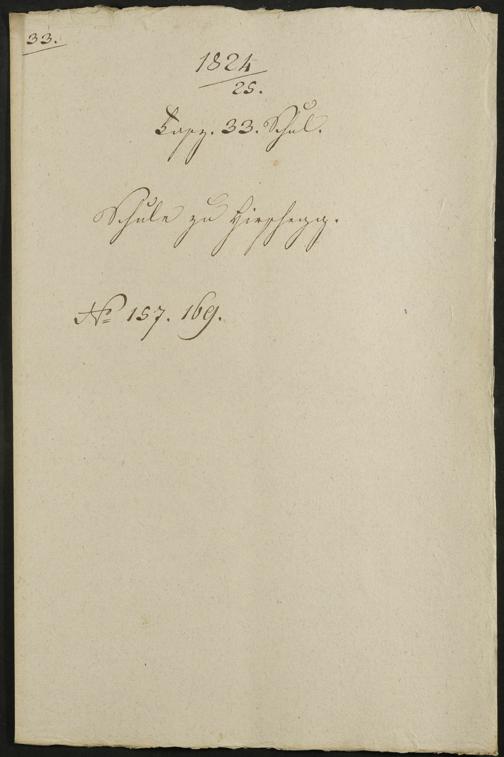 33.
1824
25.
Fasz. 33. Schul.
Schule zu Hirschegg.
No 157. 169.